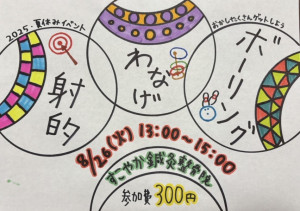 2025.夏休みイベント
おかしたくさんゲットしよう
射的
わなげ
ボーリング
8/26(火) 13:00〜15:00
すこやか鍼灸整骨院
参加費 300円